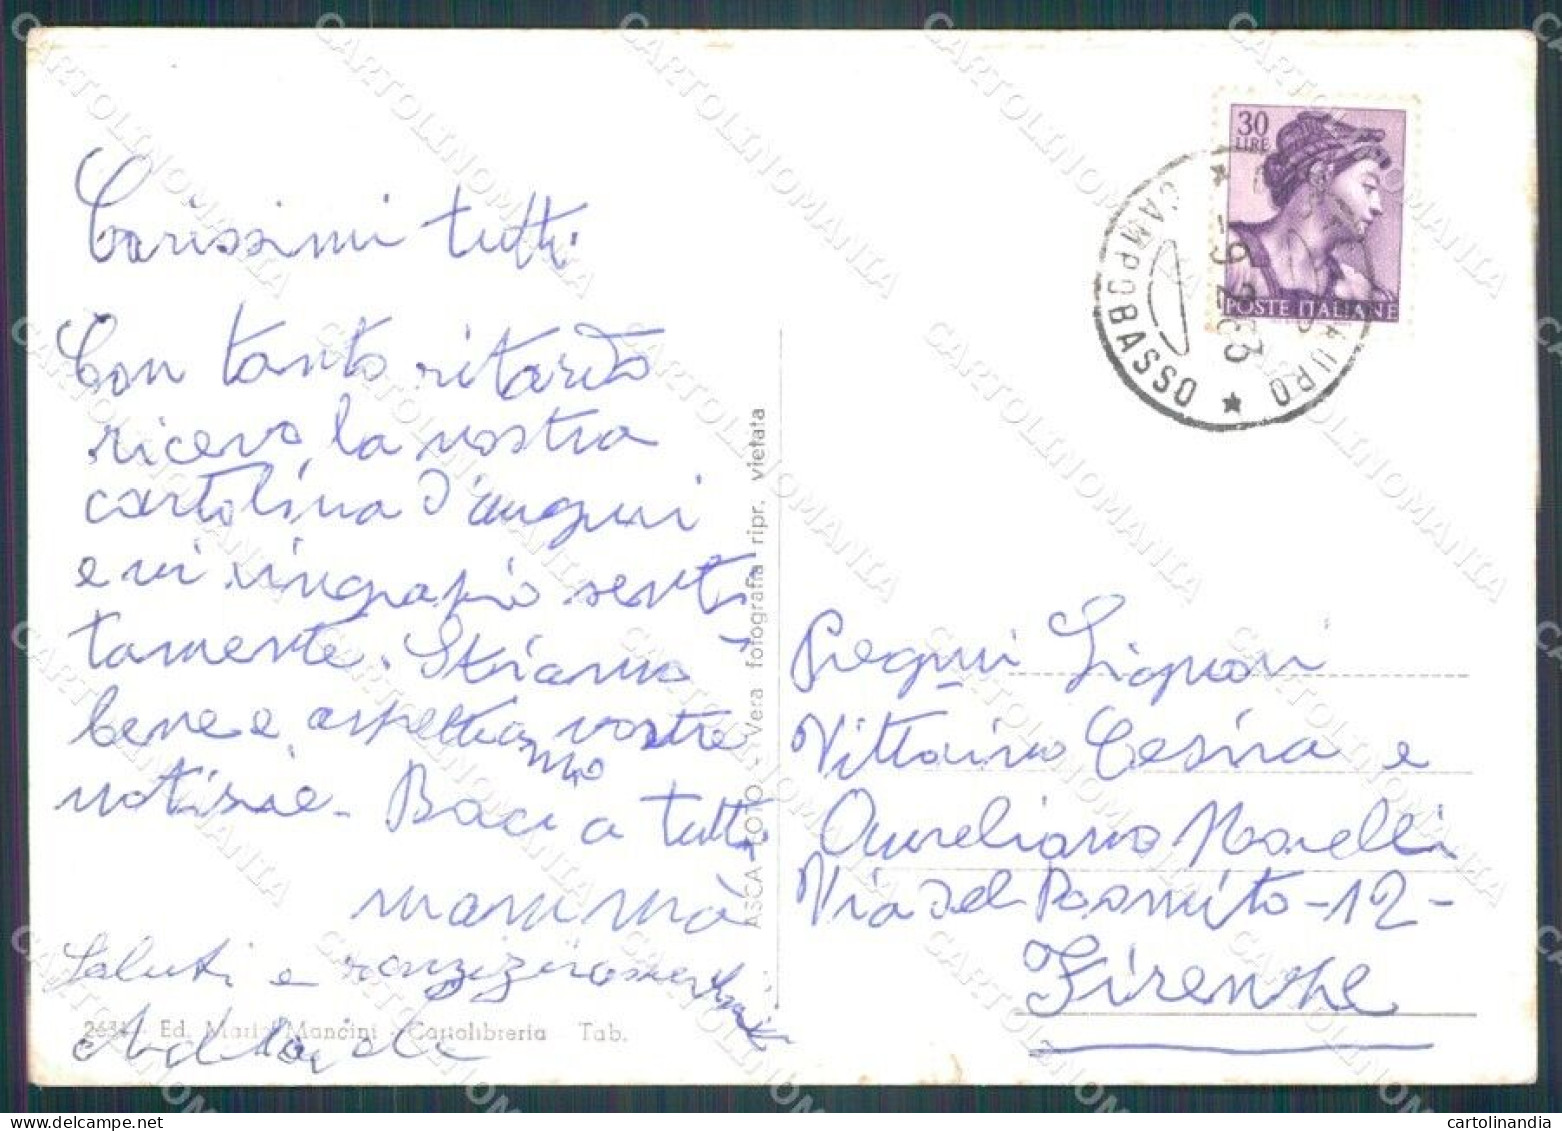 Carissimi tutti
Con tanto ritardo
ricevo la vostra
cartolina d'auguri
e vi ringrazio senti
tamente. Stiamo
bene e aspettiamo vostre
notizie - Baci a tutti
mammà
Saluti e ringraziamenti
Adelaide
2634 - Ed. Mario Mancini - Cartolibreria Tab.
ASCA FOTO - Vera fotografia ripr. vietata
30
LIRE
POSTE ITALIANE
CAMPOBASSO
-9.2.63
Pregmi Signori
Vittorino Cesira e
Aureliano Morelli
Via del - 12 -
Firenze
CARTOLINOMANIA
cartolinandia